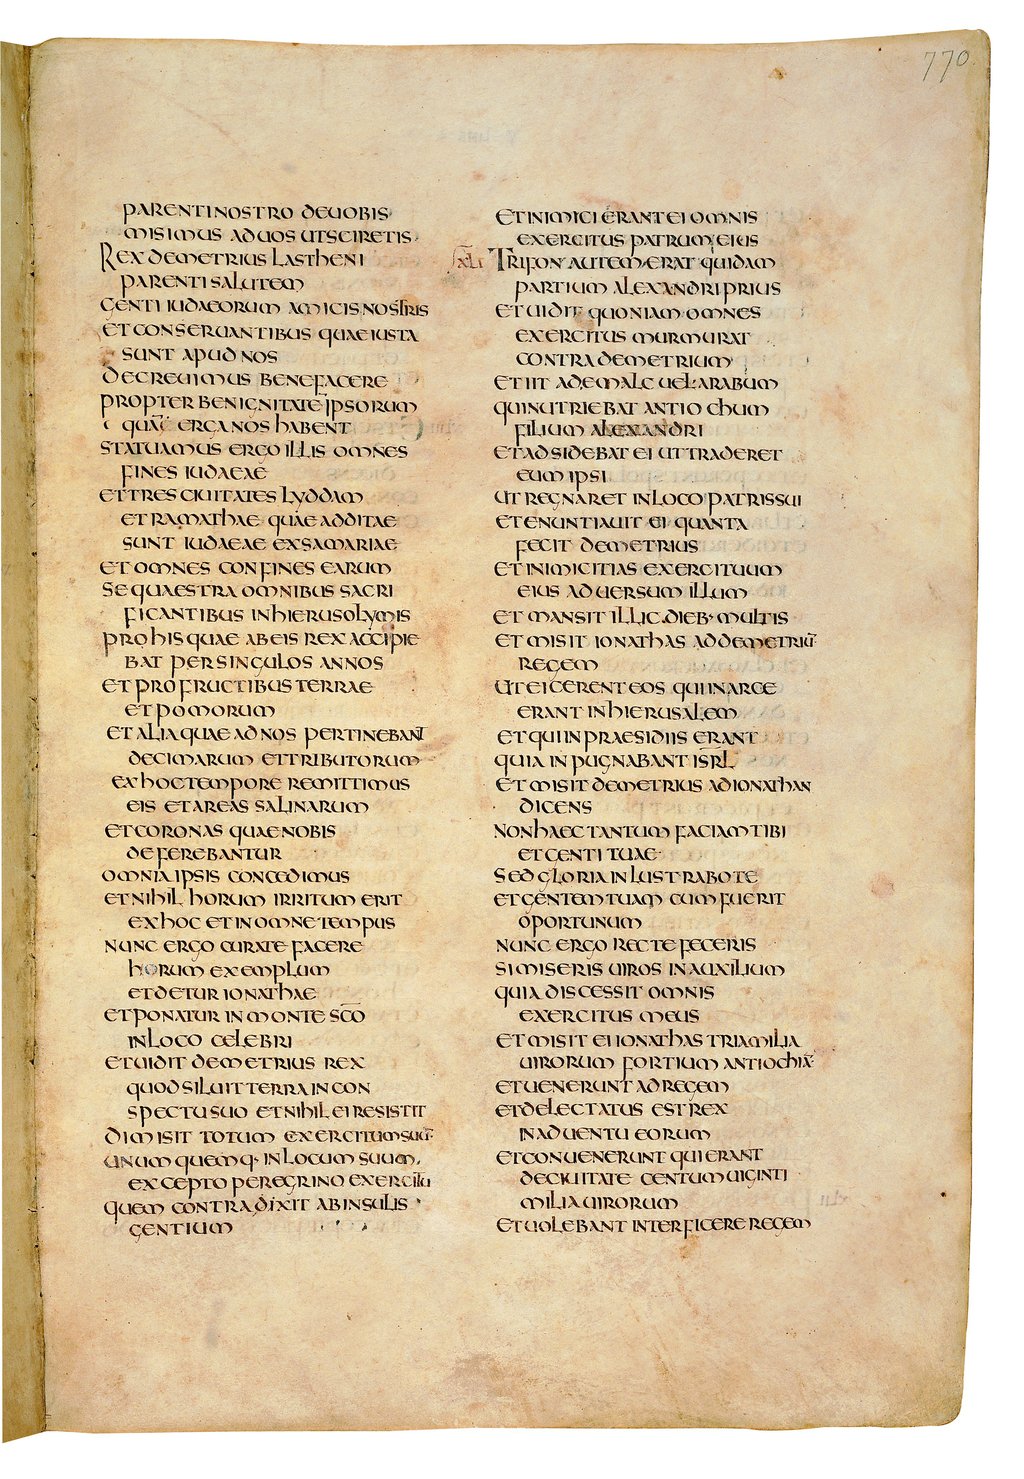 770
PARENTI NOSTRO DEUOBIS
MISIMUS AD UOS UT SCIRETIS
REX DEMETRIUS LASTHENI
PARENTI SALUTEM
GENTI IUDAEORUM AMICIS NOSTRIS
ET CONSERUANTIBUS QUAE IUSTA
SUNT APUD NOS
DECREUIMUS BENEFACERE
PROPTER BENIGNITATĒ IPSORUM
QUĀ ERGA NOS HABENT
STATUAMUS ERGO ILLIS OMNES
FINES IUDAEAE
ET TRES CIUITATES LYDDAM
ET RAMATHAE QUAE ADDITAE
SUNT IUDAEAE EX SAMARIAE
ET OMNES CONFINES EARUM
SEQUAESTRA OMNIBUS SACRI
FICANTIBUS IN HIERUSOLYMIS
PRO HIS QUAE AB EIS REX ACCIPIE
BAT PER SINGULOS ANNOS
ET PRO FRUCTIBUS TERRAE
ET POMORUM
ET ALIA QUAE AD NOS PERTINEBANT
DECIMARUM ET TRIBUTORUM
EX HOC TEMPORE REMITTIMUS
EIS ET AREAS SALINARUM
ET CORONAS QUAE NOBIS
DEFEREBANTUR
OMNIA IPSIS CONCEDIMUS
ET NIHIL HORUM IRRITUM ERIT
EX HOC ET IN OMNE TEMPUS
NUNC ERGO CURATE FACERE
HORUM EXEMPLUM
ET DETUR IONATHAE
ET PONATUR IN MONTE SC̄O
IN LOCO CELEBRI
ET UIDIT DEMETRIUS REX
QUOD SILUIT TERRA IN CON
SPECTU SUO ET NIHIL EI RESISTIT
DIMISIT TOTUM EXERCITUM SUŪ
UNUM QUEMQ· IN LOCUM SUUM
EXCEPTO PEREGRINO EXERCITU
QUEM CONTRADIXIT AB INSULIS
GENTIUM
ET INIMICI ERANT EI OMNIS
EXERCITUS PATRUM EIUS
XLI TRIFON AUTEM ERAT QUIDAM
PARTIUM ALEXANDRI PRIUS
ET UIDIT QUONIAM OMNES
EXERCITUS MURMURAT
CONTRA DEMETRIUM
ET IIT AD EMALCUEL ARABUM
QUI NUTRIEBAT ANTIOCHUM
FILIUM ALEXANDRI
ET ADSIDEBAT EI UT TRADERET
EUM IPSI
UT REGNARET IN LOCO PATRIS SUI
ET ENUNTIAUIT EI QUANTA
FECIT DEMETRIUS
ET INIMICITIAS EXERCITUUM
EIUS ADUERSUM ILLUM
ET MANSIT ILLIC DIEB· MULTIS
ET MISIT IONATHAS AD DEMETRIŪ
REGEM
UT EICERENT EOS QUI IN ARCE
ERANT IN HIERUSALEM
ET QUI IN PRAESIDIIS ERANT
QUIA INPUGNABANT ISR̄L
ET MISIT DEMETRIUS AD IONATHAN
DICENS
NON HAEC TANTUM FACIAM TIBI
ET GENTI TUAE
SED GLORIA INLUSTRABO TE
ET GENTEM TUAM CUM FUERIT
OPORTUNUM
NUNC ERGO RECTE FECERIS
SI MISERIS UIROS IN AUXILIUM
QUIA DISCESSIT OMNIS
EXERCITUS MEUS
ET MISIT EI IONATHAS TRIA MILIA
UIRORUM FORTIUM ANTIOCHIĀ
ET UENERUNT AD REGEM
ET DELECTATUS EST REX
IN ADUENTU EORUM
ET CONUENERUNT QUI ERANT
DE CIUITATE CENTUM UIGINTI
MILIA UIRORUM
ET UOLEBANT INTERFICERE REGEM